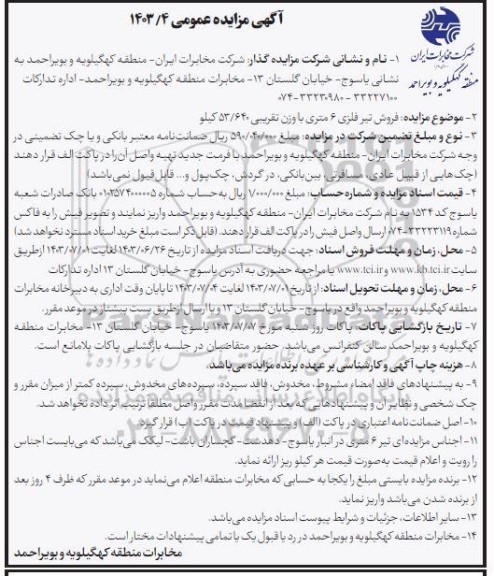 آگهی مزایده عمومی ۱۴۰۳/۴
شرکت مخابرات ایران
منطقه کهگیلویه و بویراحمد
۱- نام و نشانی شرکت مزایده گذار: شرکت مخابرات ایران- منطقه کهگیلویه و بویراحمد به
نشانی یاسوج- خیابان گلستان ۱۳- مخابرات منطقه کهگیلویه و بویراحمد- اداره تدارکات
۳۳۲۲۷۱۰۰ - ۳۳۲۳۰۹۸۰-۰۷۴
۲- موضوع مزایده: فروش تیر فلزی ۶ متری با وزن تقریبی ۵۳/۶۴۰ کیلو
۳- نوع و مبلغ تضمین شرکت در مزایده: مبلغ ۵۹۰/۰۴۰/۰۰۰ ریال ضمانت‌نامه معتبر بانکی و یا چک تضمینی در
وجه شرکت مخابرات ایران- منطقه کهگیلویه و بویراحمد با فرمت جدید تهیه واصل آن‌را در پاکت الف قرار دهند
(چک‌هایی از قبیل عادی، مسافرتی، بین‌بانکی، در گردش، چک‌پول و... قابل قبول نمی‌باشد)
۴- قیمت اسناد مزایده و شماره حساب: مبلغ ۷/۰۰۰/۰۰۰ ریال به حساب شماره ۰۱۰۲۵۷۴۰۰۰۰۰۵ بانک صادرات شعبه
یاسوج کد ۱۵۳۴ به نام شرکت مخابرات ایران- منطقه کهگیلویه و بویراحمد واریز نمایند و تصویر فیش را به فاکس
شماره ۳۳۲۲۳۱۱۹-۰۷۴ ارسال واصل فیش را در پاکت الف قرار دهند. (قابل ذکر است مبلغ خرید اسناد مسترد نخواهد شد)
۵- محل، زمان و مهلت فروش اسناد: جهت دریافت اسناد مزایده از تاریخ ۱۴۰۳/۰۶/۲۶ لغایت ۱۴۰۳/۰۷/۰۱ از طریق
سایت www.tci.ir و www.kb.tci.ir یا مراجعه حضوری به آدرس یاسوج- خیابان گلستان ۱۳ اداره تدارکات
۶- محل، زمان و مهلت تحویل اسناد: از تاریخ ۱۴۰۳/۰۷/۰۱ لغایت ۱۴۰۳/۰۷/۰۴ تا پایان وقت اداری به دبیرخانه مخابرات
منطقه کهگیلویه و بویراحمد واقع در یاسوج- خیابان گلستان ۱۳ و یا ارسال از طریق پست پیشتاز در موعد مقرر.
۷- تاریخ بازگشایی پاکات: پاکات روز شنبه مورخ ۱۴۰۳/۰۷/۰۷ یاسوج- خیابان گلستان ۱۳- مخابرات منطقه
کهگیلویه و بویراحمد سالن کنفرانس می‌باشد، حضور متقاضیان در جلسه بازگشایی پاکات بلامانع است.
۸- هزینه چاپ آگهی و کارشناسی بر عهده برنده مزایده می‌باشد.
۹- به پیشنهادهای فاقد امضاء مشروط، مخدوش، فاقد سپرده، سپرده‌های مخدوش، سپرده کمتر از میزان مقرر و
چک شخصی و نظایر آن و پیشنهادهایی که بعد از انقضا مدت مقرر واصل مطلقا ترتیب اثر داده نخواهد شد.
۱۰- اصل ضمانت‌نامه اعتباری در پاکت (الف) و پیشنهاد قیمت در پاکت (ب) قرار گیرد.
۱۱- اجناس مزایده‌ای تیر ۶ متری در انبار یاسوج- دهدشت- گچساران باشت- لیکک می‌باشد که می‌بایست اجناس
را رویت و اعلام قیمت به‌صورت قیمت هر کیلو ریز ارائه نماید.
۱۲- برنده مزایده بایستی مبلغ را یکجا به حسابی که مخابرات منطقه اعلام می‌نماید در موعد مقرر که ظرف ۴ روز بعد
از برنده شدن می‌باشد واریز نماید.
۱۳- سایر اطلاعات، جزئیات و شرایط پیوست اسناد مزایده می‌باشد.
۱۴- مخابرات منطقه کهگیلویه و بویراحمد در رد یا قبول یک یا تمامی پیشنهادات مختار است.
مخابرات منطقه کهگیلویه و بویراحمد